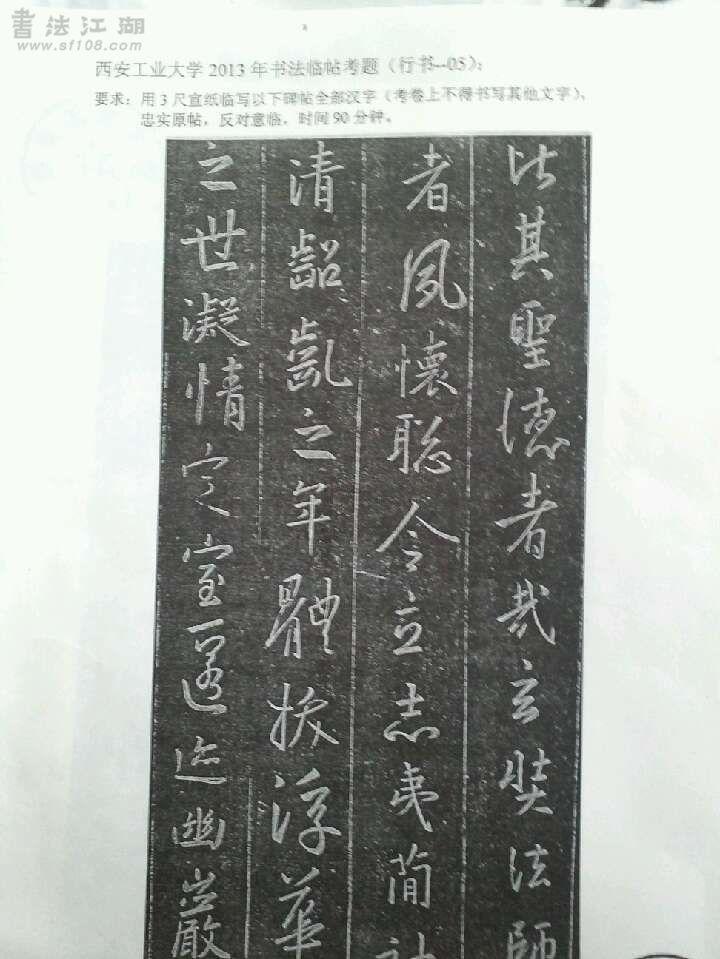 書法江湖
www.sf108.com
西安工业大学 2013 年书法临帖考题（行书--05）：
要求：用 3 尺宣纸临写以下碑帖全部汉字（考卷上不得书写其他文字）、
忠实原帖，反对意临。时间 90 分钟。
比其聖德者哉玄奘法師
者夙懷聡令立志夷簡神
清齠齔之年體拔浮華
之世凝情定室匿迹幽巖